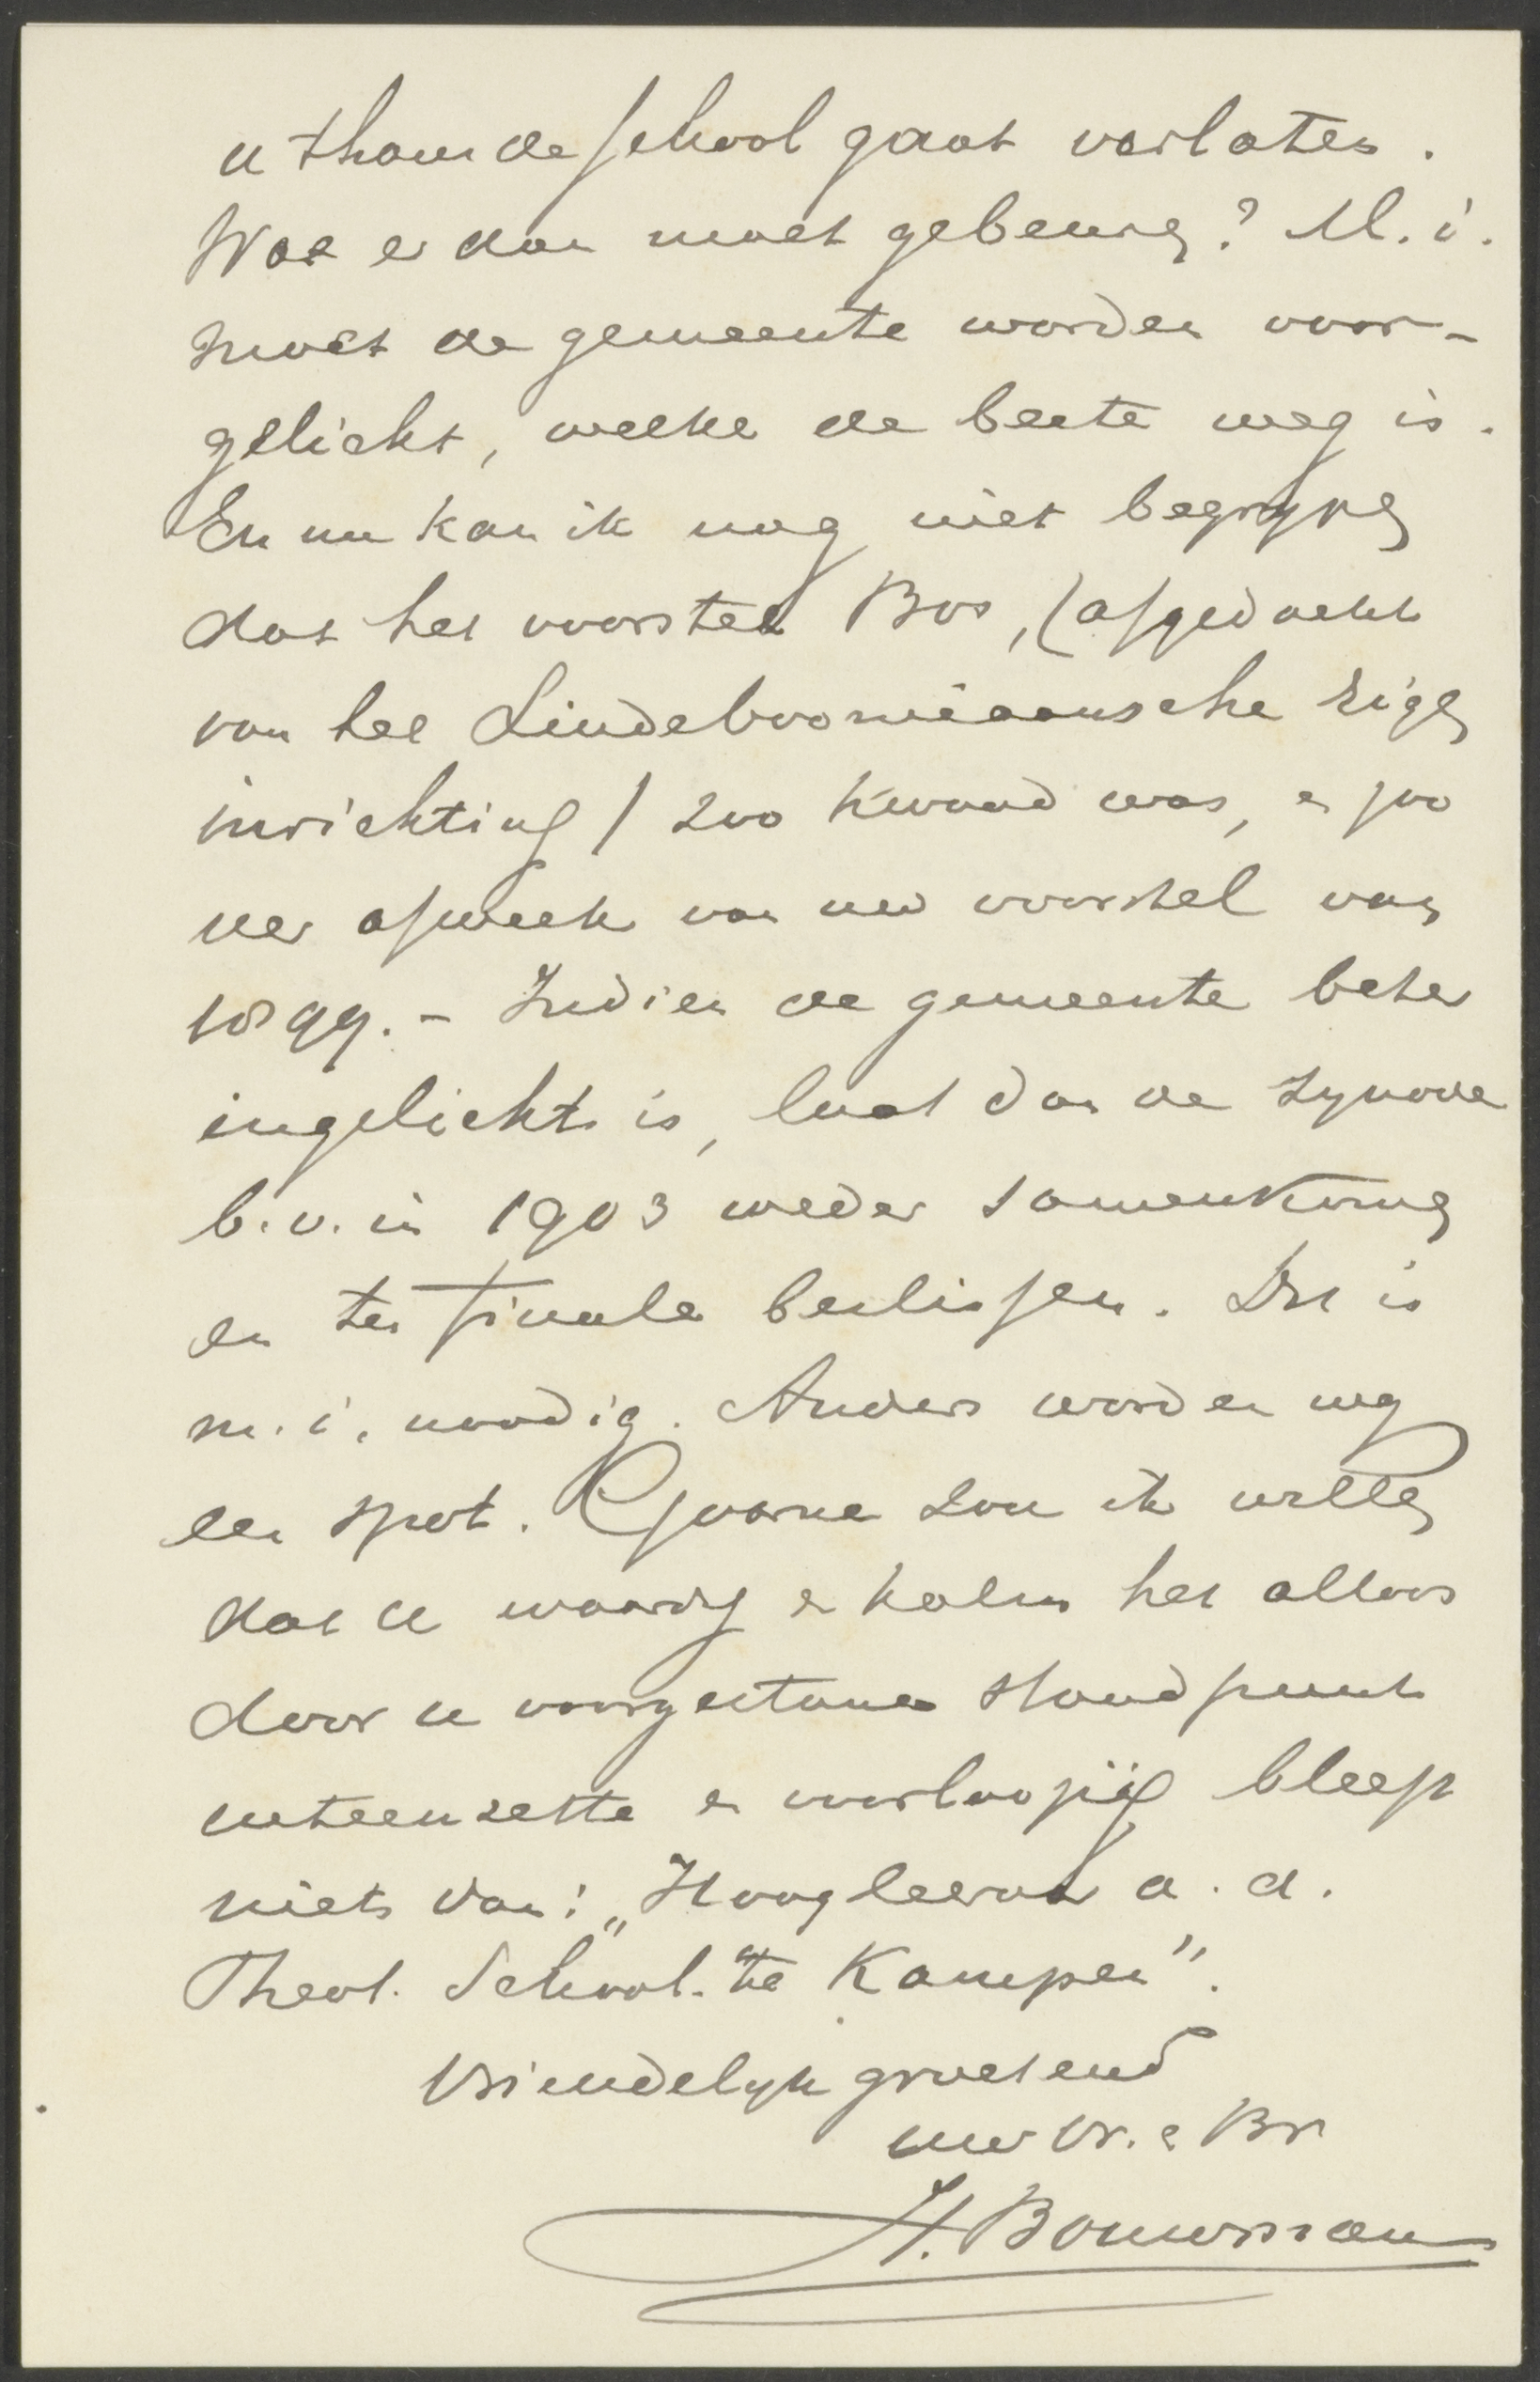 u thans de school gaat verlaten.
Wat er dan moet gebeuren? M.i.
moet de gemeente worden voor-
gelicht, welke de beste weg is.
En nu kan ik nog niet begrijpen
dat het voorstel Bos, (afgedacht
van het Lindeboomiaansche eigen
inrichting) zoo kwaad was, en zoo
ver afweek van uw voorstel van
1899. - Indien de gemeente beter
ingelicht is, laat dan de Synode
b.v. in 1903 weder samenkomen
en ten finale beslissen. Dit is
m.i. noodig. Anders worden wij
een spot. Gaarne zou ik willen
dat U waardig en kalm het alloos
door u voorgestane standpunt
uiteenzette en voorloopig bleef
niets dan: „Hoogleeraar a. d.
Theol. School. te Kampen".
Vriendelijk groetend
uw Vr. e Br
H. Bouwman